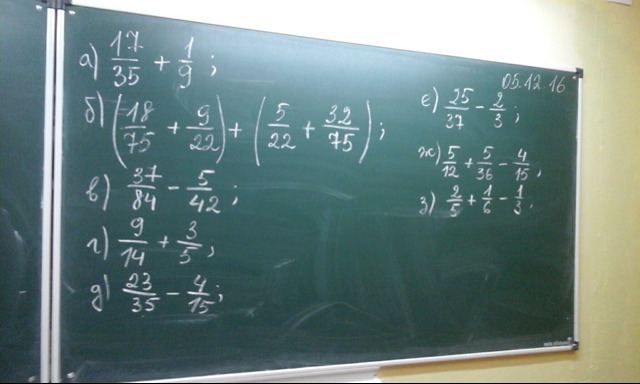 05.12.16
а) 17/35 + 1/9 ;
б) (18/75 + 9/22) + (5/22 + 32/75) ;
в) 37/84 - 5/42 ;
г) 9/14 + 3/5 ;
д) 23/35 - 4/15 ;
е) 25/37 - 2/3 ;
ж) 5/12 + 5/36 - 4/15 ;
з) 2/5 + 1/6 - 1/3 .